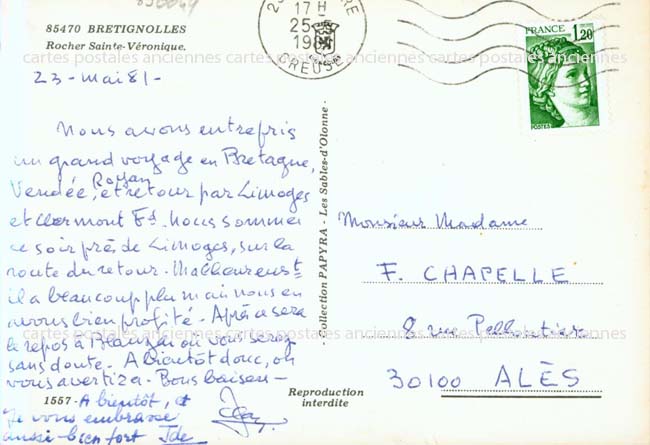 85470 BRETIGNOLLES
Rocher Sainte-Véronique.
23 - mai 81 -
Nous avons entrepris
un grand voyage en Bretagne,
Vendée, Royan, et retour par Limoges
et Clermont Fd. Nous sommes
ce soir près de Limoges, sur la
route du retour. Malheureust
il a beaucoup plu mais nous en
avons bien profité. Après ce sera
le repos à Blauzac où vous serez
sans doute. A bientôt donc, on
vous avertira. Bons baisers -
1557 - A bientôt, et
Je vous embrasse
aussi bien fort
Reproduction
interdite
Collection PAPYRA - Les Sables-d'Olonne -
17 H
25 -
CREUSE
FRANCE
1,20
POSTES
Monsieur Madame
F. CHAPELLE
8 rue
30100 ALÈS
cartes postales anciennes cartes postales anciennes cartes postales anciennes
cartes postales anciennes cartes postales anciennes cartes postales anciennes